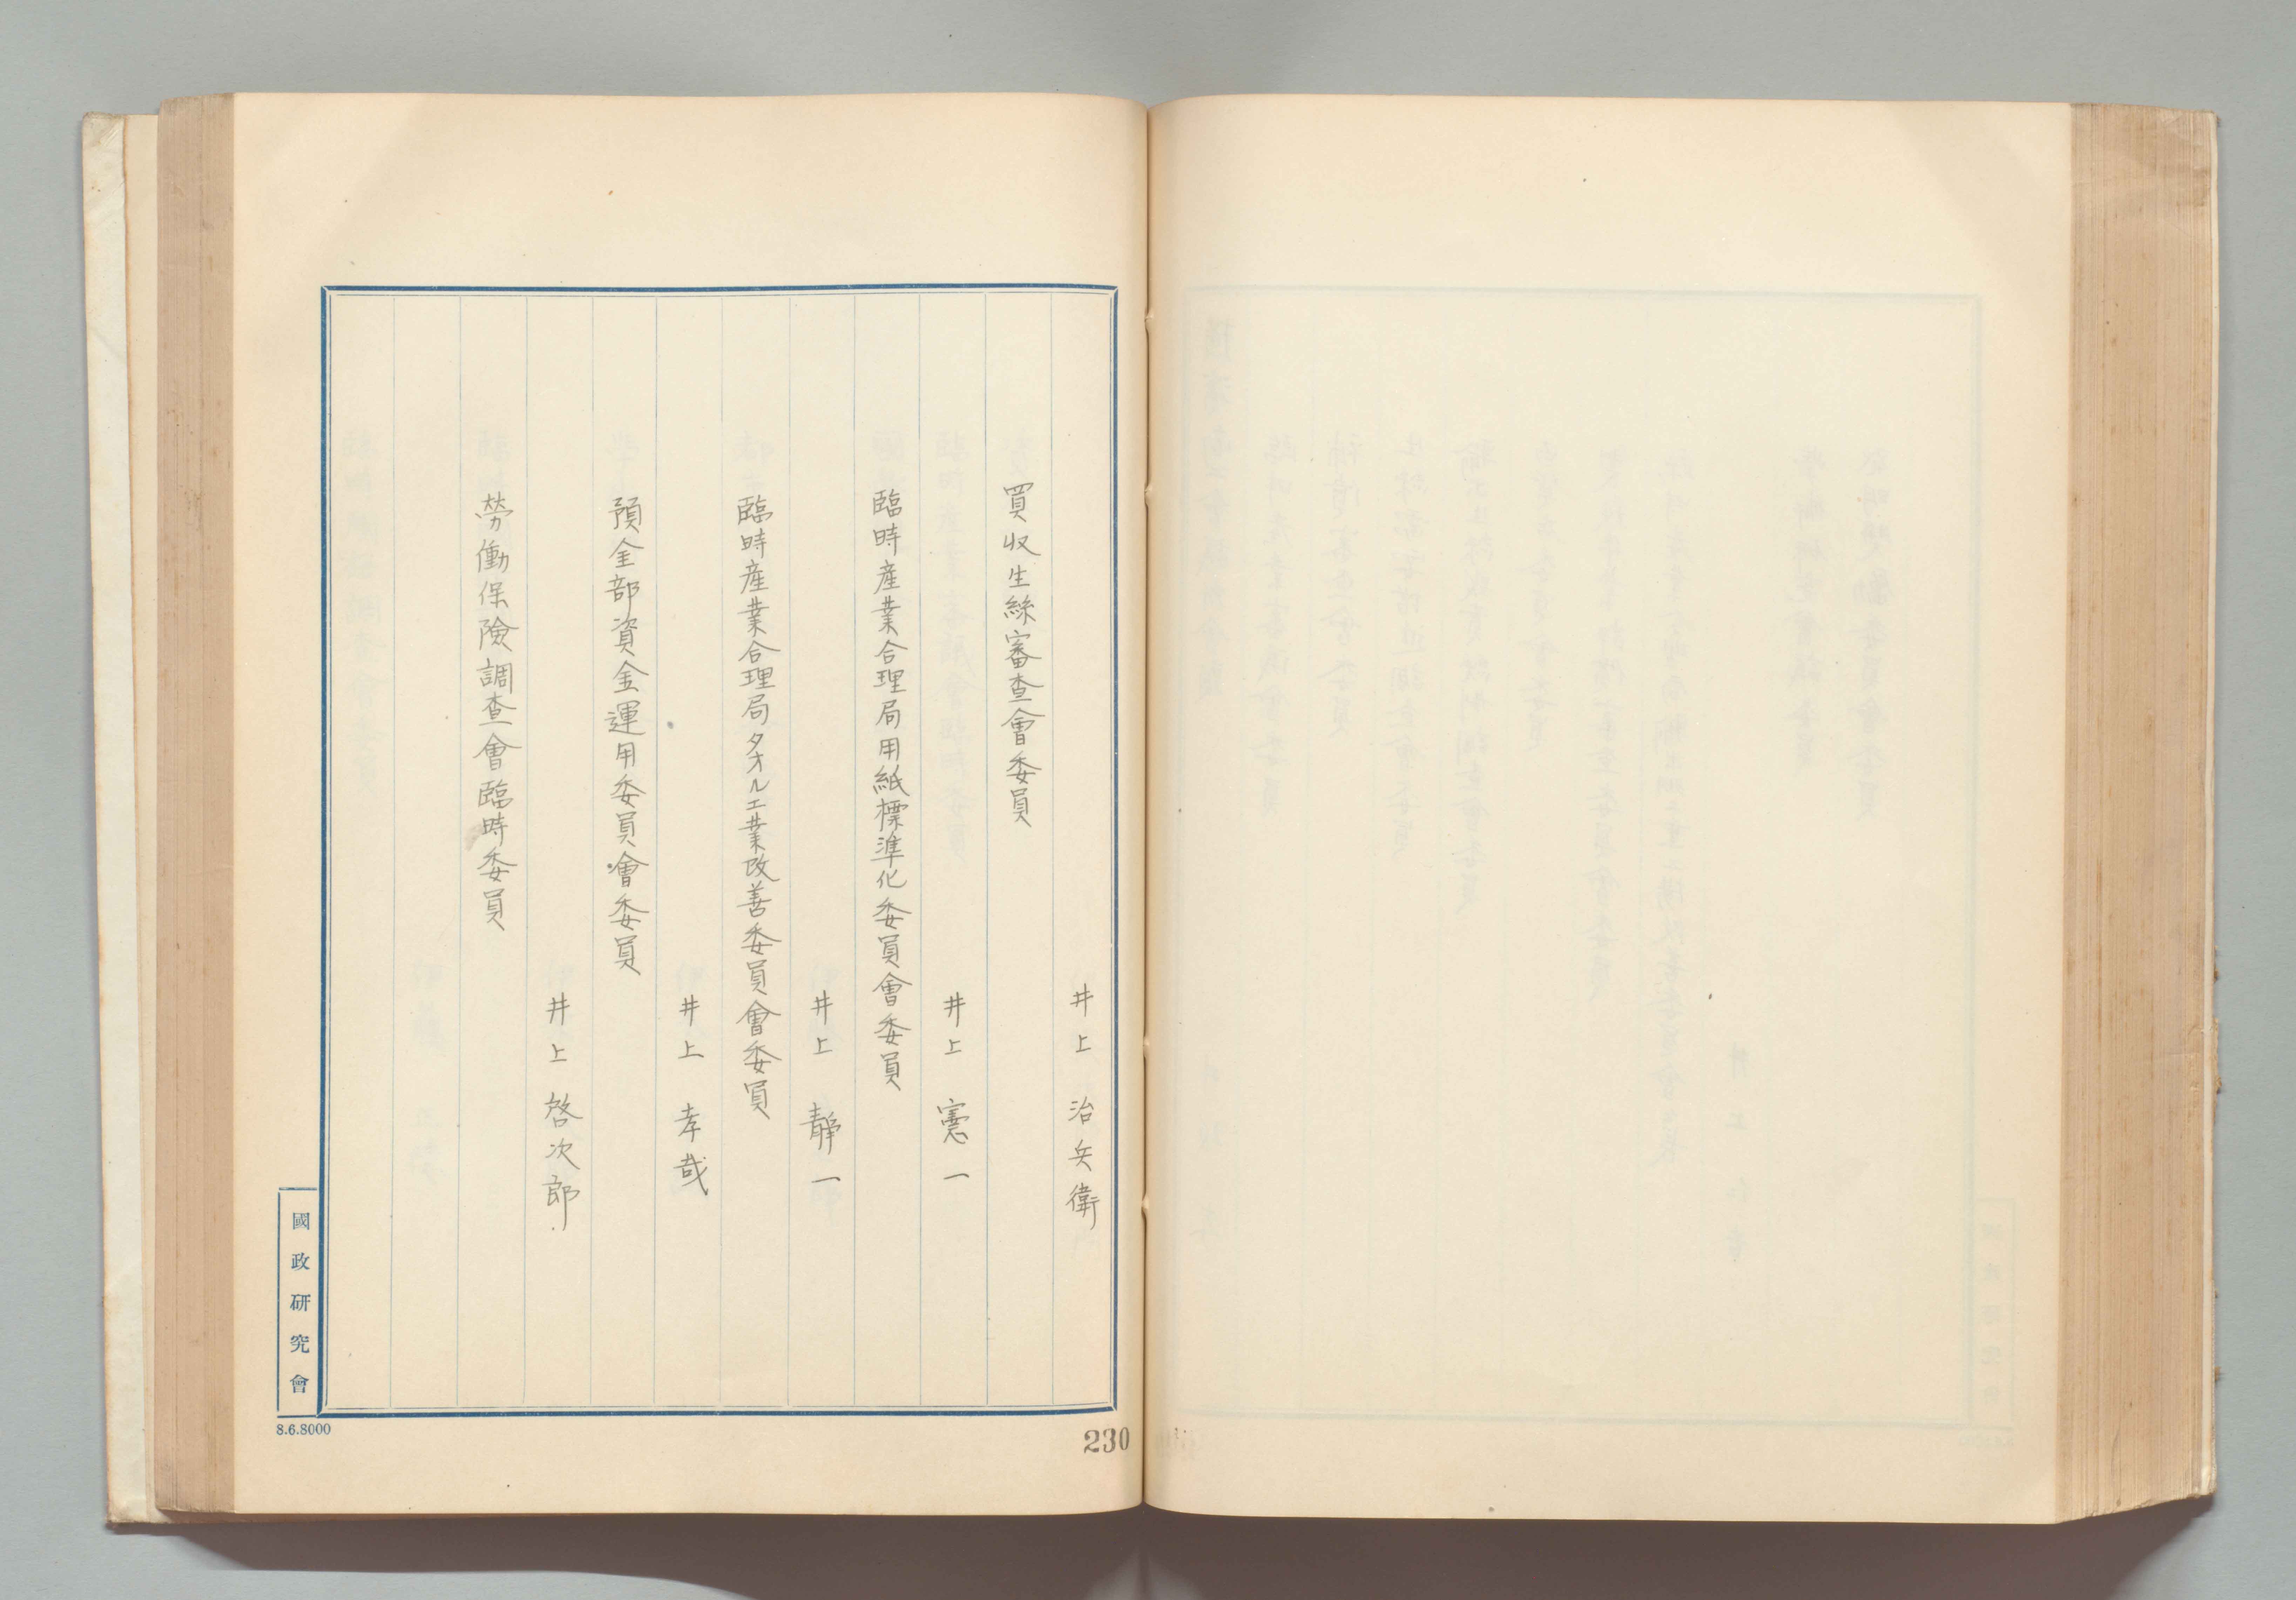 井上治兵衛
買収生絲審査會委員
井上憲一
臨時産業合理局用紙標準化委員會委員
井上靜一
臨時産業合理局タオル工業改善委員會委員
井上孝哉
預金部資金運用委員會委員
井上啓次郎
勞働保險調査會臨時委員
國政研究會
8.6.8000
230